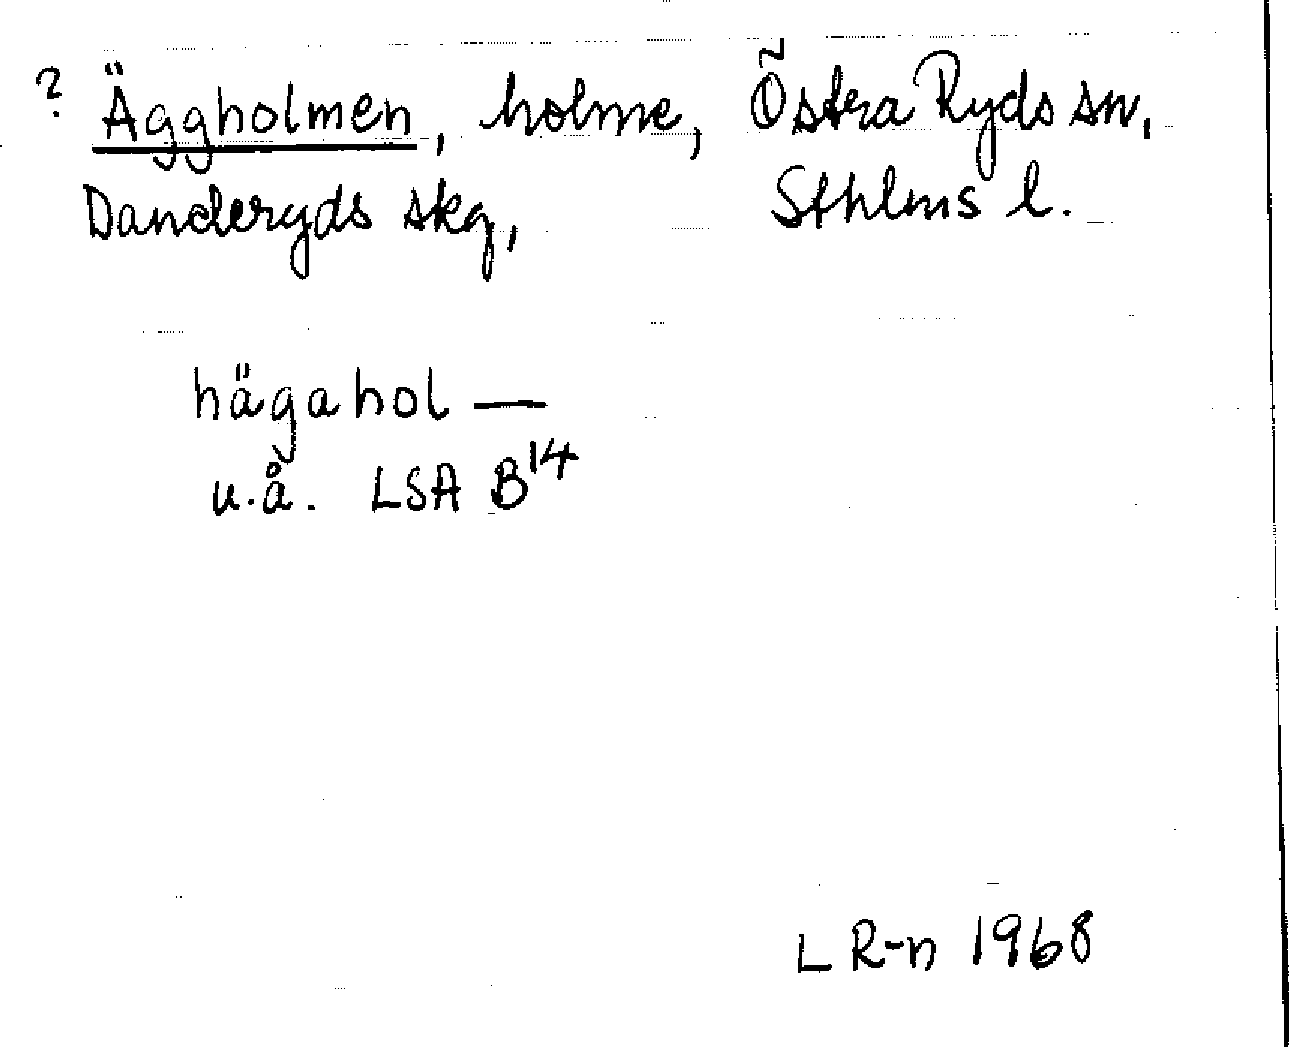 ? Äggholmen, holme, Östra Ryds sn,
Danderyds skg, Sthlms l.
hägahol —
u.å. LSA B14
L R-n 1968